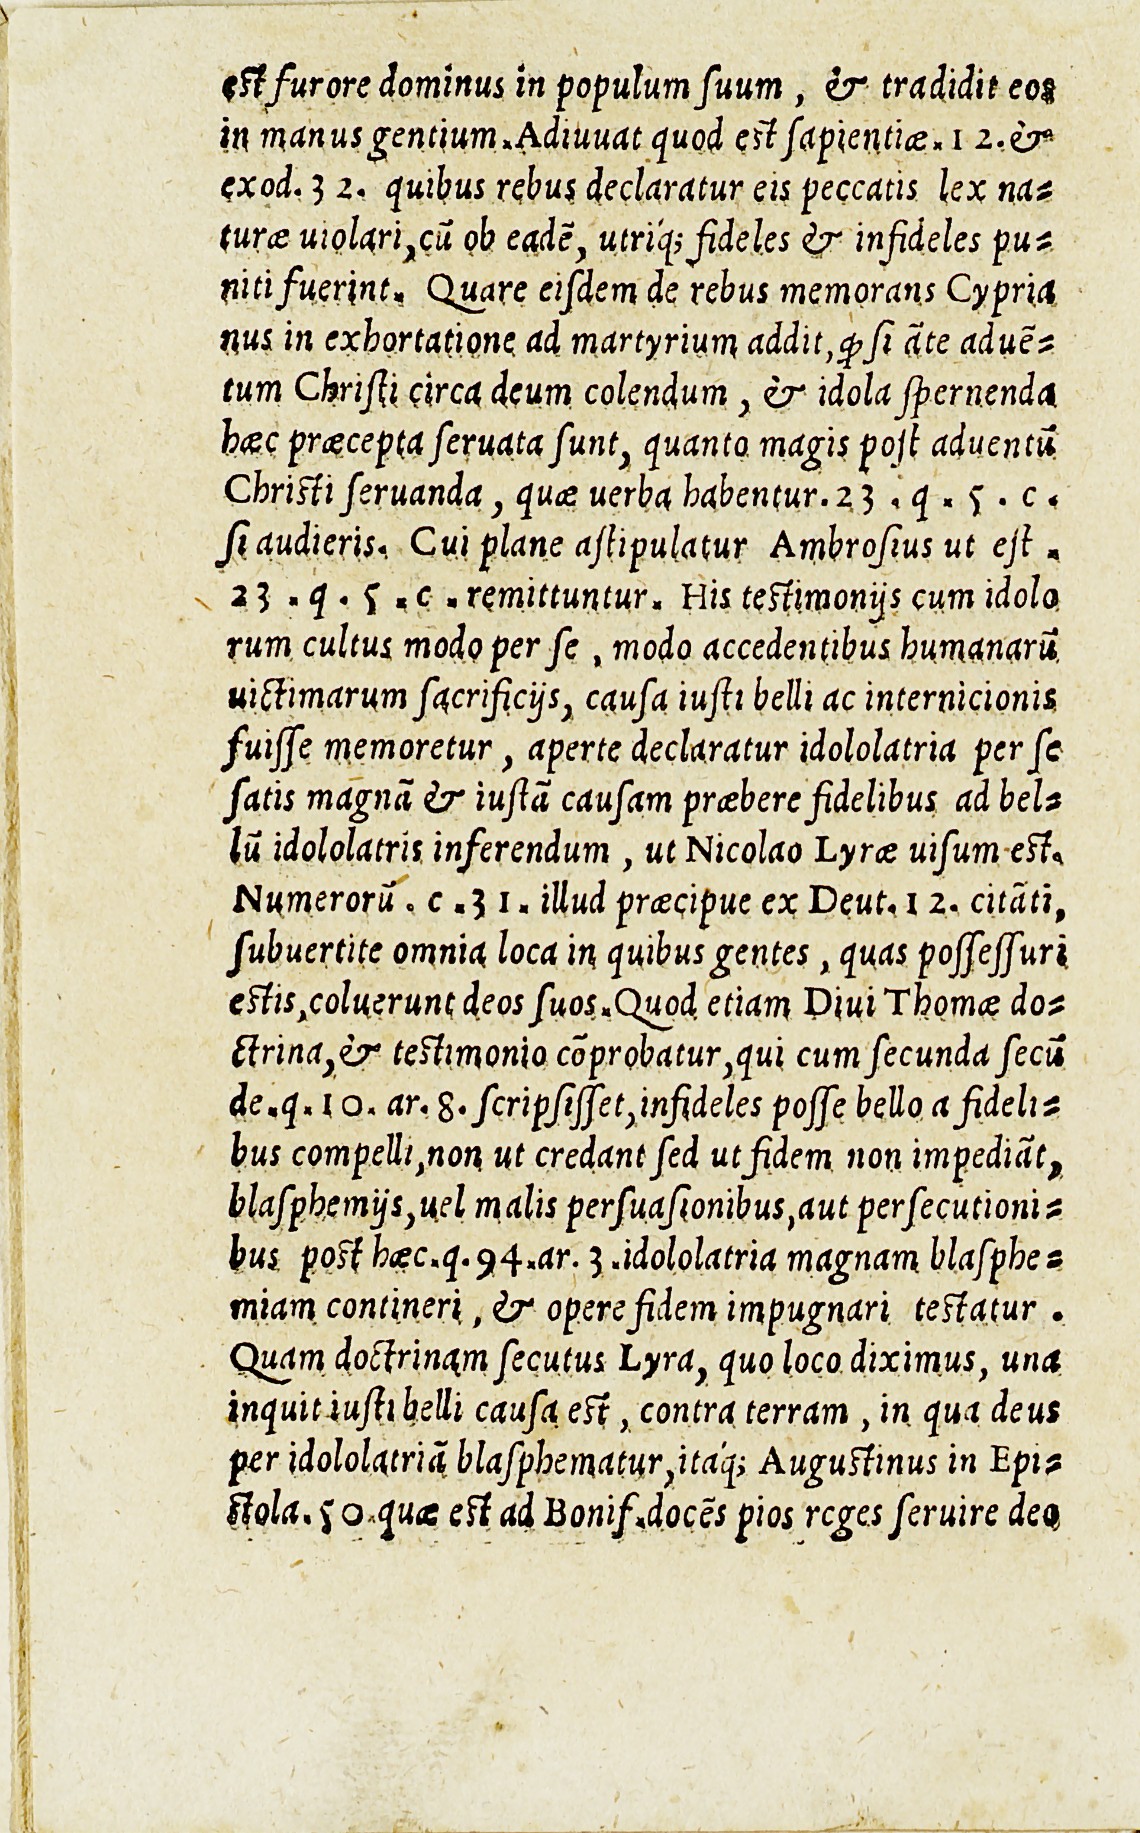 est furore dominus in populum ſuum , & tradidit eos
in manus gentium.Adiuuat quod est ſapientiæ.12.&
exod.32. quibus rebus declaratur eis peccatis lex na⸗
turæ uiolari,cū ob eadē, utriq́; fideles & infideles pu⸗
niti fuerint. Quare eiſdem de rebus memorans Cypria
nus in exhortatione ad martyrium addit,ꝙ ſi āte aduē⸗
tum Chriſti circa deum colendum , & idola ſpernenda
hæc præcepta ſeruata ſunt, quanto magis poſt aduentū
Christi ſeruanda , quæ uerba habentur.23 . q . 5 . c .
ſi audieris. Cui plane aſtipulatur Ambroſius ut eſt .
23 . q . 5 . c . remittuntur. His testimonijs cum idolo
rum cultus modo per ſe , modo accedentibus humanarū
uictimarum ſacrificijs, cauſa iuſti belli ac internicionis
fuiſſe memoretur , aperte declaratur idololatria per ſe
ſatis magnā & iuſtā cauſam præbere fidelibus ad bel⸗
lū idololatris inferendum , ut Nicolao Lyræ uiſum est.
Numerorū . c .31. illud præcipue ex Deut.12. citāti,
ſubuertite omnia loca in quibus gentes , quas poſſeſſuri
estis,coluerunt deos ſuos.Quod etiam Diui Thomæ do⸗
ctrina,& testimonio cōprobatur,qui cum ſecunda ſecū
de.q.10. ar.8. ſcripſiſſet,infideles poſſe bello a fideli⸗
bus compelli,non ut credant ſed ut fidem non impediāt,
blaſphemijs,uel malis perſuaſionibus,aut perſecutioni⸗
bus post hæc.q.94.ar.3.idololatria magnam blaſphe⸗
miam contineri , & opere fidem impugnari testatur .
Quam doctrinam ſecutus Lyra, quo loco diximus, una
inquit iuſti belli cauſa est , contra terram , in qua deus
per idololatriā blaſphematur,itáq; Augustinus in Epi⸗
stola.50.quæ est ad Bonif.docēs pios reges ſeruire deo